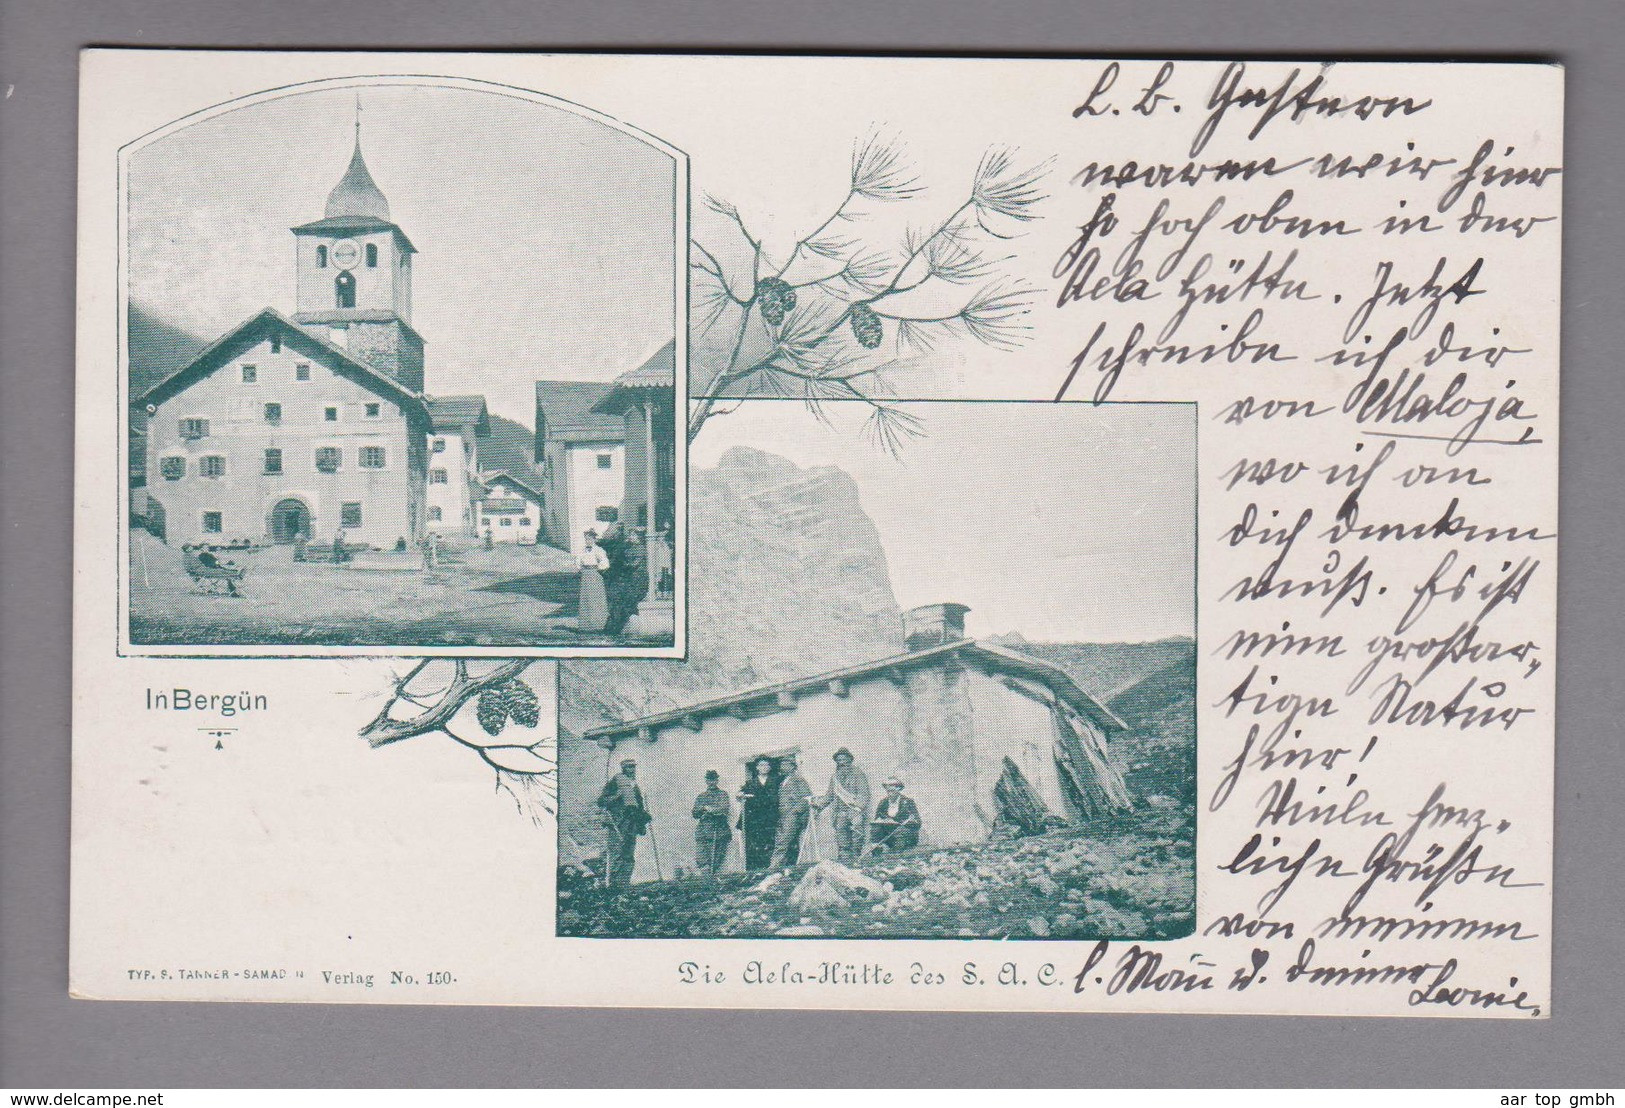 L. B. Gestern
waren wir hier
so hoch oben in der
Aela Hütte. Jetzt
schreibe ich dir
von Maloja,
wo ich an
dich denken
muß. Es ist
eine großar-
tige Natur
hier!
Viele herz-
liche Grüße
von meinem
l. Mañ u. deiner
Leonie.
In Bergün
TYP. S. TANNER - SAMADEN Verlag No. 150.
Die Aela-Hütte des S. A. C.
delcampe.net
aar top gmbh